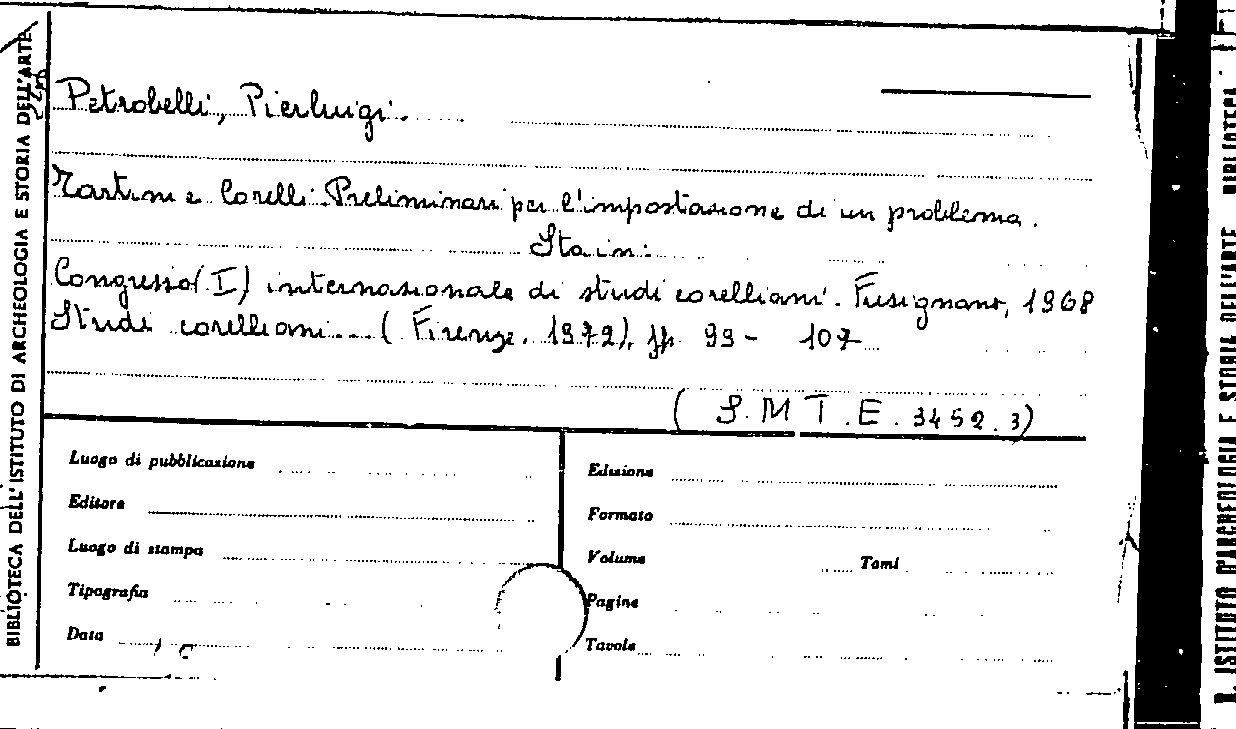 BIBLIOTECA DELL'ISTITUTO DI ARCHEOLOGIA E STORIA DELL'ARTE
Petrobelli, Pierluigi.
Tartini e Corelli Preliminari per l'impostazione di un problema.
Sta in:
Congresso (I) internazionale di studi corelliani. Fusignano, 1968
Studi corelliani... (Firenze. 1972), pp. 99 - 107
(S. M T. E. 3452. 3)
Luogo di pubblicazione
Editore
Luogo di stampa
Tipografia
Data
Edizione
Formato
Volume Tomi
Pagine
Tavole
R. ISTITUTO D'ARCHEOLOGIA E STORIA DELL'ARTE BIBLIOTECA